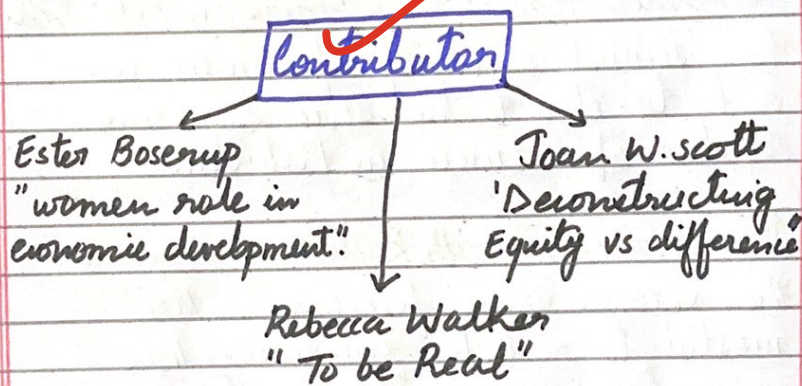 Contributor
Ester Boserup
"women role in
economic development".
Joan W. Scott
'Deconstructing
Equity vs difference'
Rebecca Walker
"To be Real"